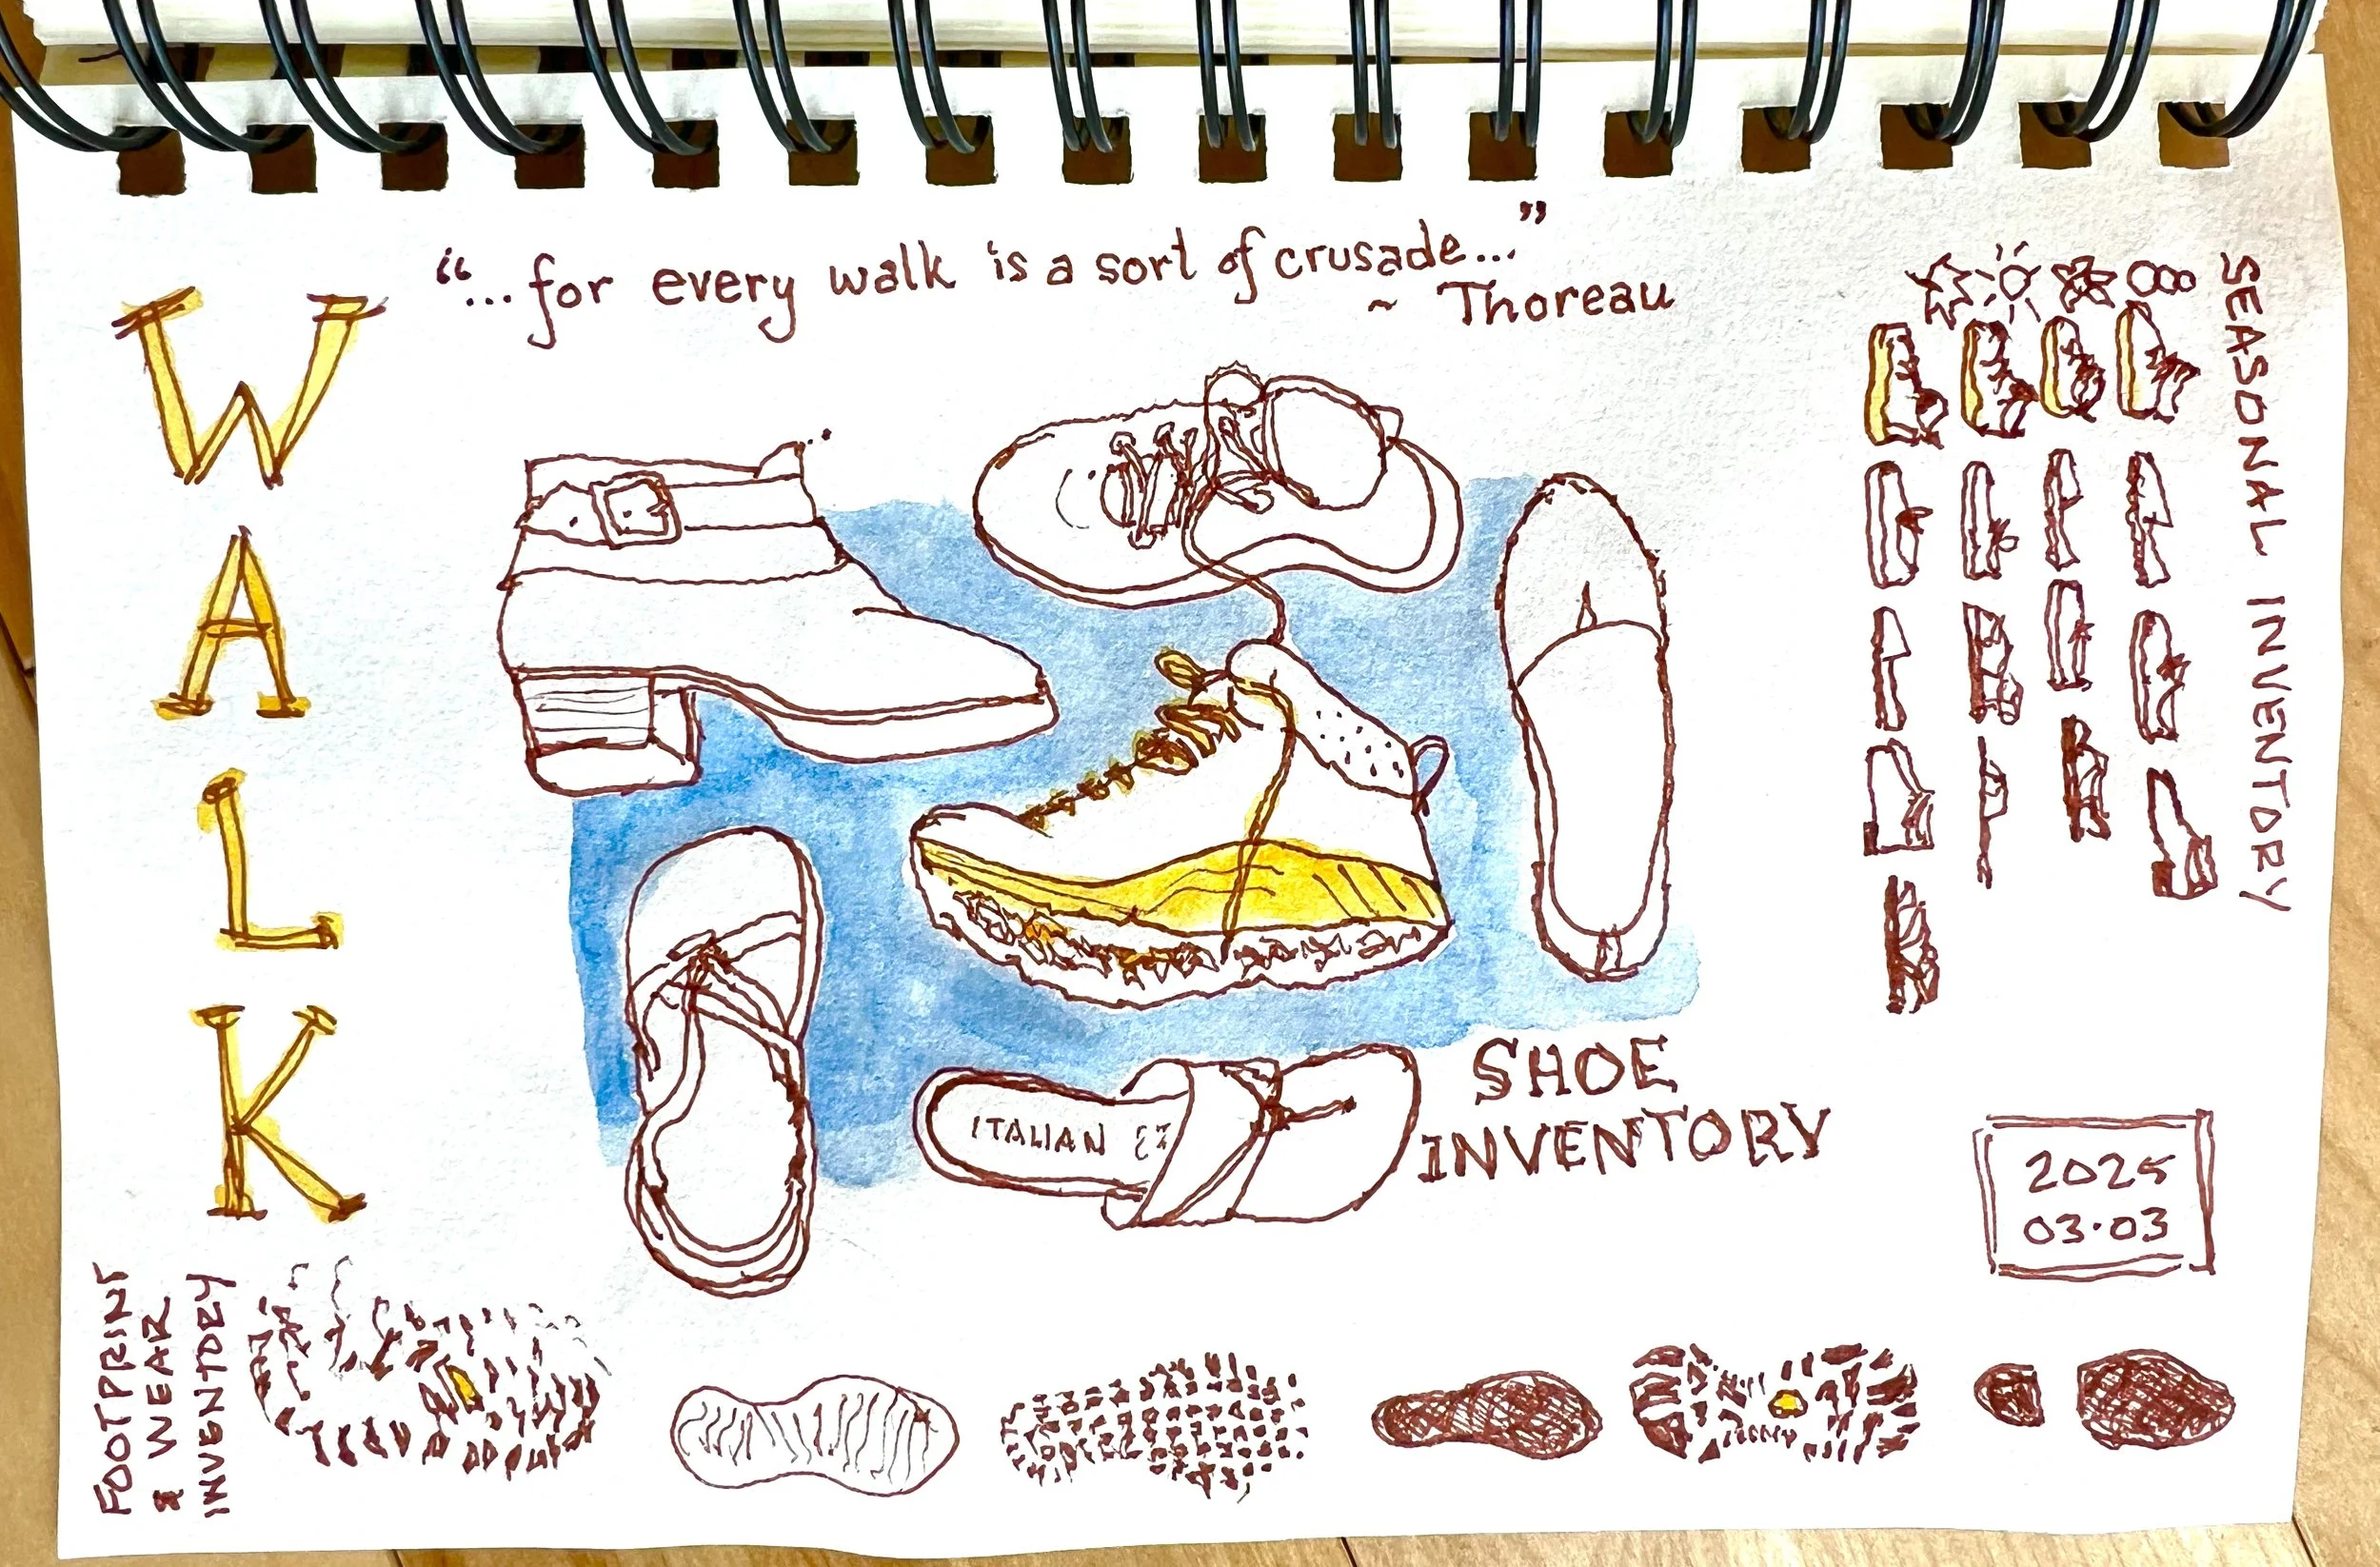 “...for every walk is a sort of crusade...”
~ Thoreau
WALK
SEASONAL INVENTORY
ITALIAN
SHOE
INVENTORY
2025
03·03
FOOTPRINT
& WEAR
INVENTORY